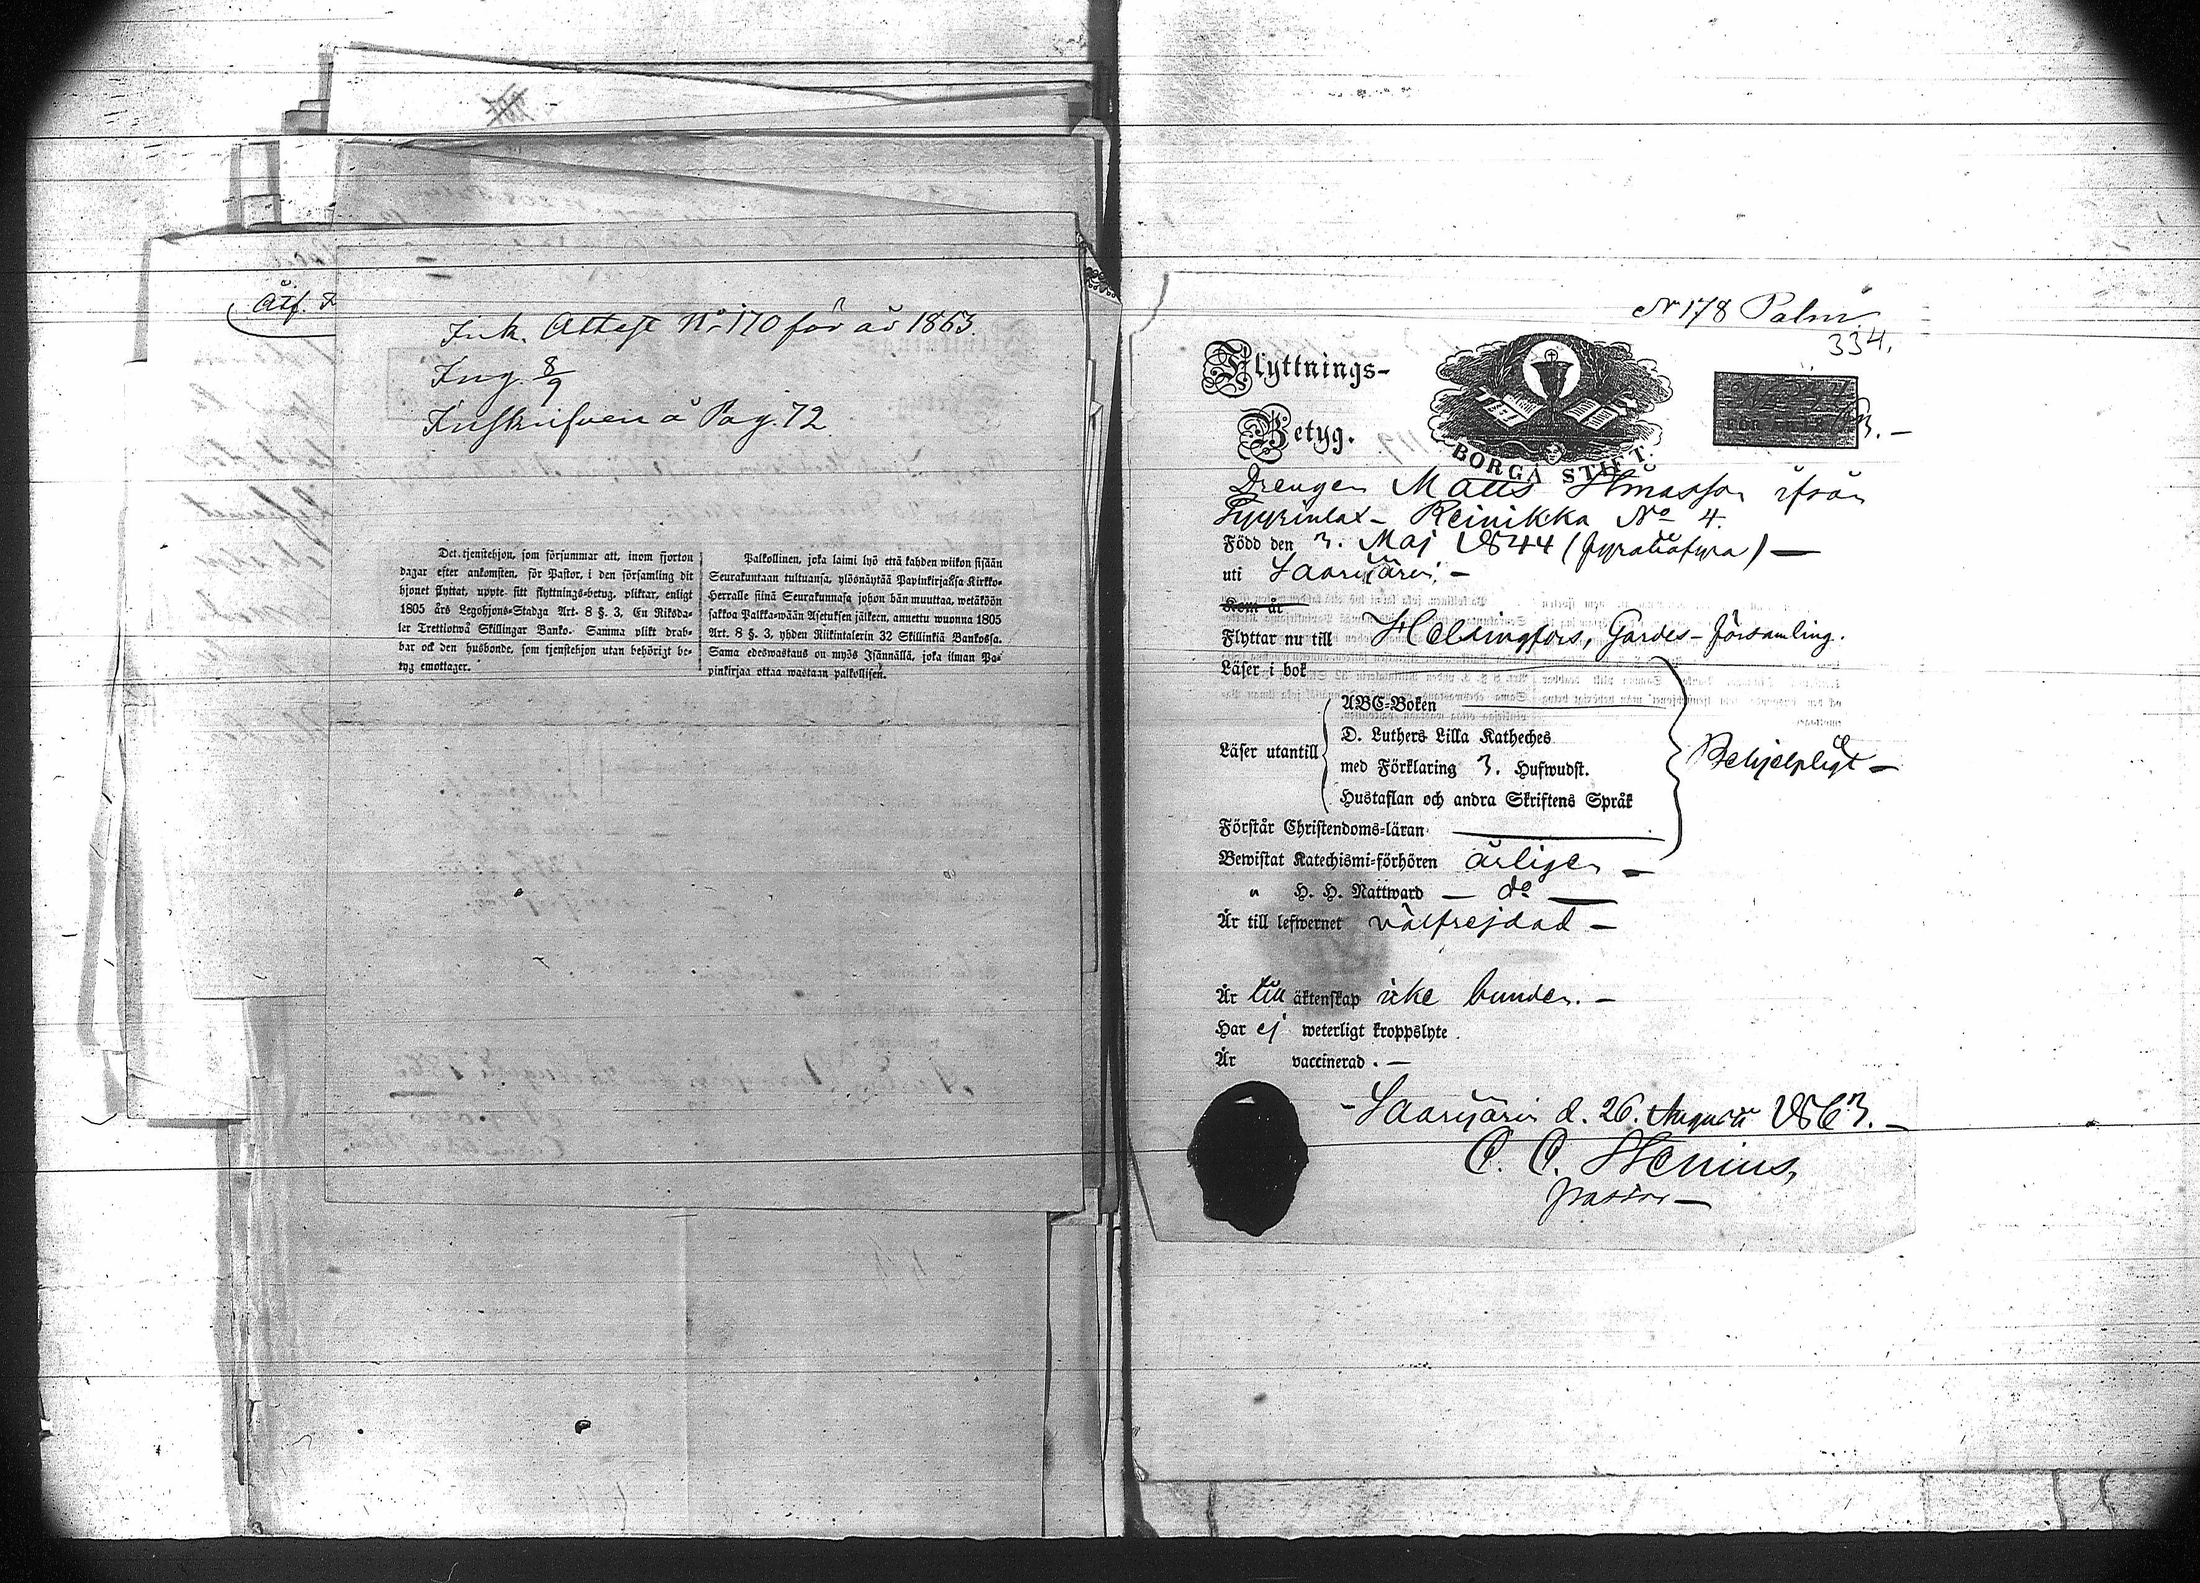 Åtf.
Ink. Attest No 170 för år 1863.
Ing. 8/9
Inskrifven å Pag. 72
Det tjenstehjon, som försummar att, inom fjorton
dagar efter ankomsten, för Pastor, i den församling dit
hjonet flyttat, uppte sitt flyttnings-betyg, pliktar, enligt
1805 års Legohjons-Stadga Art. 8 §. 3, En Riksda-
ler Trettiotwå Skillingar Banko. Samma plikt drab-
bar ock den husbonde, som tjenstehjon utan behörigt be-
tyg emottager.
Palkollinen, joka laimi lyö että kahden wiikon sisään
Seurakuntaan tultuansa, ylösnäytää Papinkirjaksa Kirkko-
Herralle siinä Seurakunnasa johon hän muuttaa, wetäköön
sakkoa Palkka-wään Asetuksen jälkeen, annettu wuonna 1805
Art. 8 §. 3, yhden Riikintalerin 32 Skillinkiä Bankossa.
Sama edeswastaus on myös Isännällä, joka ilman Pa-
pinkirjaa ottaa wastaan palkollisen.
N 178 Palm
334.
Flyttnings-
Betyg.
BORGÅ STIFT.
Drengen Matts ifrån
Pyyrinlax Reinikka No 4.
Född den 3. Maj 1844 (fyratiofyra) —
uti Saarijärvi —
Kom år
Flyttar nu till Helsingfors, Gardes-församling.
Läser i bok
ABC-Boken
D. Luthers Lilla Katheches
Läser utantill
med Förklaring 3. Hufwudst.
Behjelpligt —
Hustaflan och andra Skriftens Språk
Förstår Christendoms-läran
Bewistat Katechismi-förhören årligen —
" H. H. Nattward — do —
Är till lefwernet välfrejdad —
Är till äktenskap icke bunden. —
Har ej weterligt kroppslyte.
Är vaccinerad. —
Saarijärvi d. 26. Augusti 1863. —
C. C. Stenius,
pastor —